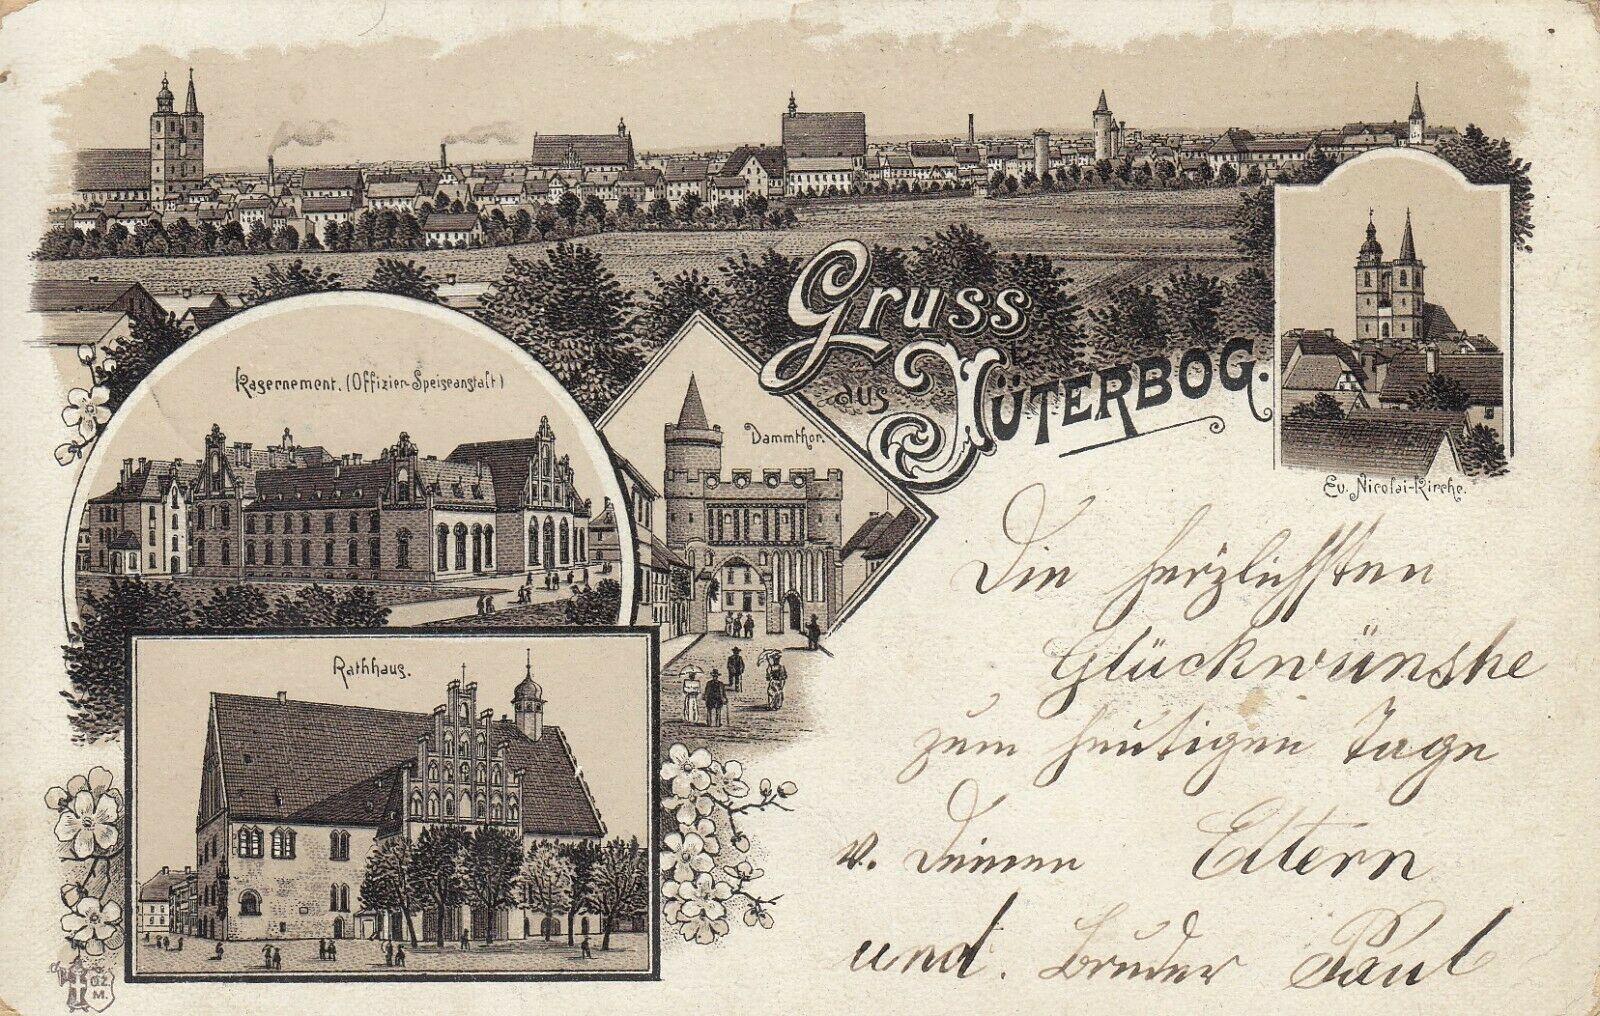 Gruss
aus JÜTERBOG.
Kasernement. (Offizier-Speiseanstalt)
Dammthor.
Ev. Nicolai-Kirche.
Rathhaus.
Die herzlichsten
Glückwünshe
zum heutigen Tage
v. Deinen Eltern
und. Bruder Paul
GZ.
M.